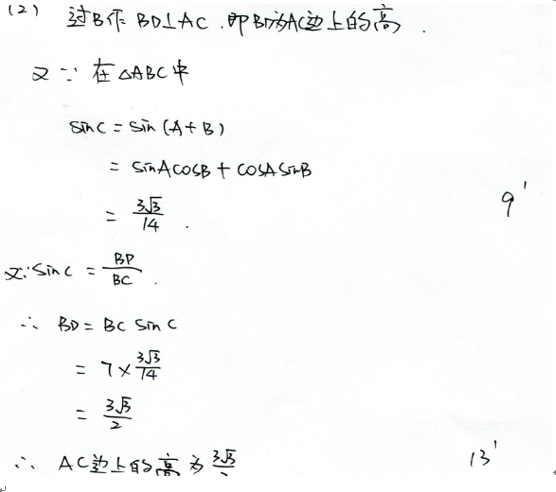 (2) 过B作 BD⊥AC .即BD为AC边上的高 .
又∵ 在△ABC中
sinC = sin (A+B)
= sinAcosB + cosAsinB
= 3√3/14 .
9'
又∵ sinC = BD/BC .
∴ BD = BC sinC
= 7 × 3√3/14
= 3√3/2
∴ AC边上的高为 3√3/2
13'